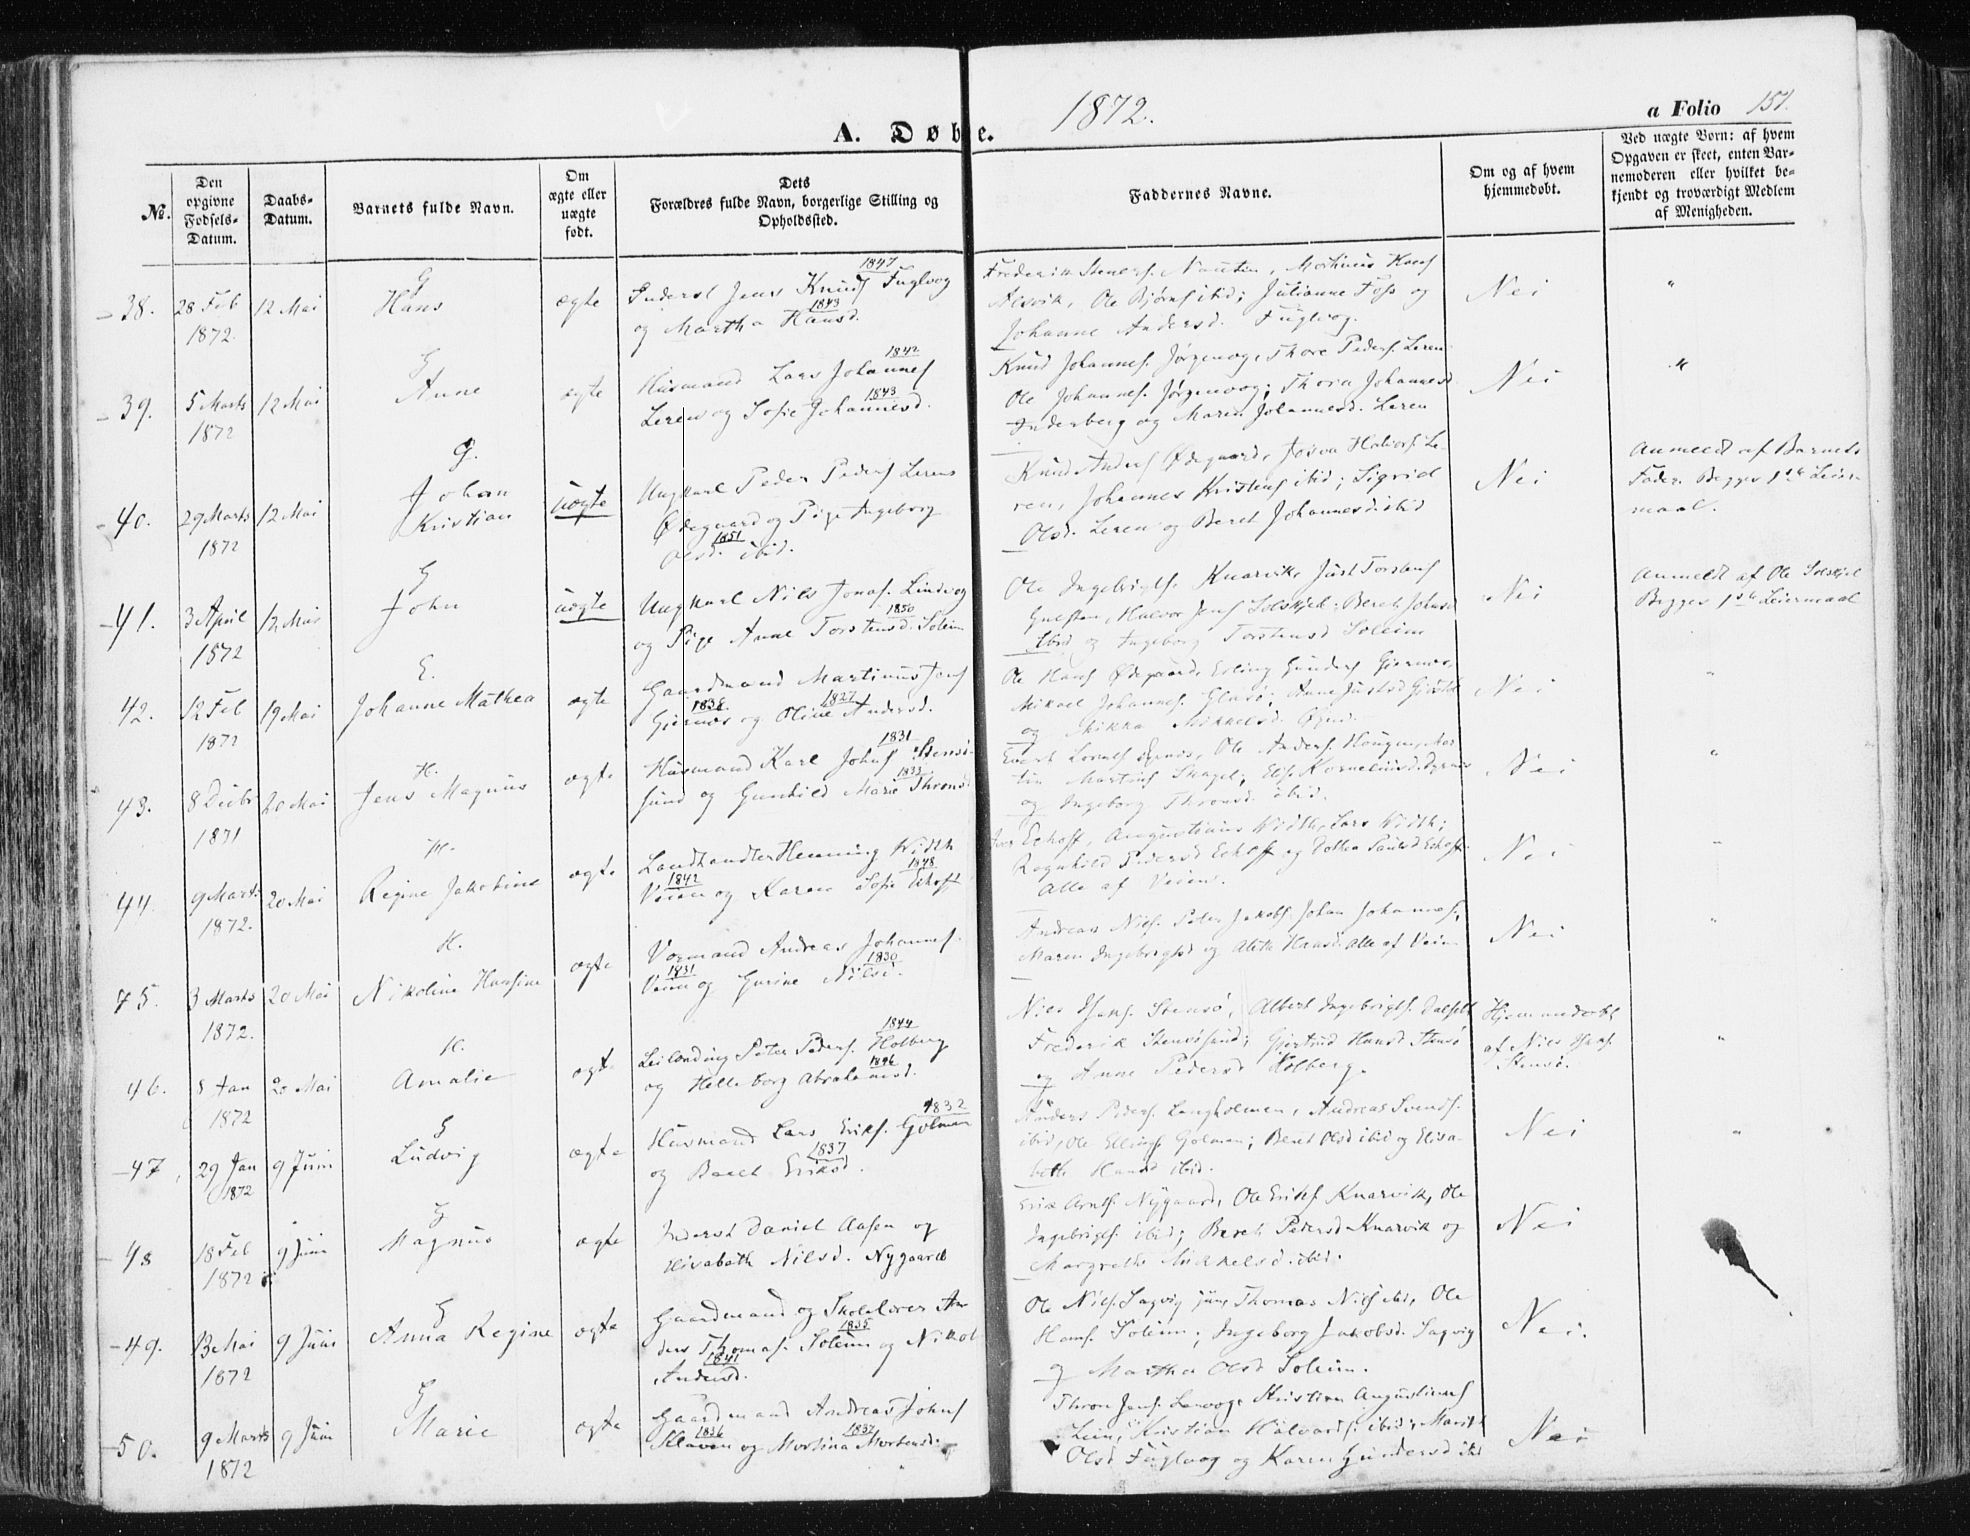 1872.
a Folio 151.
A. Døbte.
No.
Den opgivne Fødsels-Datum.
Daabs-Datum.
Barnets fulde Navn.
Om ægte eller uægte født.
Dets Forældres fulde Navn, borgerlige Stilling og Opholdssted.
Faddernes Navne.
Om og af hvem hjemmedøbt.
Ved uægte Børn: af hvem Opgaven er skeet, enten Barnemoderen eller hvilket bekjendt og troværdigt Medlem af Menigheden.
38. 28 Feb 1872. 12 Mai
G
Hans
ægte
1847
Inderst Jens Knuds Fuglvog
1843
og Martha Hansd.
Frederik Steners. Martinus Hans
Alsvik, Ole Bjørns ibid; Julianne Foss og
Johanne Andersd. Fuglvog.
Nei
"
39. 5 Marts 1872 12 Mai
G
Anne
ægte
1842
Husmand Lars Johannes
1843
Leren og Sofie Johannesd.
Knud Johannes. Jørgenvog, Thore Peders. Leren
Ole Johannes. Jørgenvog; Thora Johannesd.
Inderberg og Maren Johannesd. Leren
Nei
"
40. 29 Marts 1872 12 Mai
G.
Johan
Kristian
uægte
Ungkarl Peder Peders Lerens
Ødegaard og Pige Ingeborg
1851
Olsd. ibid.
Knud Anders Ødegaard, Josva Halvors. Le-
ren, Johannes Kristens ibid; Sigrid
Olsd. Leren og Beret Johannesd. ibid
Nei
Anmeldt af Barnets
Fader. Begges 1ste Leier-
maal.
41. 3 April 1872 12 Mai
G
John
uægte
Ungkarl Nils Jonas. Lindvog
1850
og Pige Anne Torstensd. Soleim
Ole Ingebrigts. Knarvik, Just Torstens
Gulsten, Halvor Jens Solskjel; Beret Johnsd
Ibid og Ingeborg Torstensd Soleim
Nei
Anmeldt af Ole Solskjel
Begges 1ste Leiermaal
42. 12 Feb 1872 19 Mai
E.
Johanne Mathea
ægte
Gaardmand Martinus Jens
1838 1837
Gjernes og Oline Andersd.
Ole Hans Ødegaard, Erling Gunders Gjernes,
Mikael Johannes. Glasø; Anne Justsd
og Mikkelsd.
Nei
"
43. 8 Decbr 1871 20 Mai
H.
Jens Magnus
ægte
1831
Husmand Karl Johns Stensø-
1833
sund og Gunhild Marie Thronsd
Evert Dyrnes, Ole Anders. Hougen, Mar-
tin Martins Skagel; Else Korneliusd. Dyrnes
og Ingeborg Thronsd ibid.
Nei
"
44 9 Marts 1872. 20 Mai
H.
Regine Jakobine
ægte
Landhandler Henning Width
1842 1848.
Veien og Karen Sofie Eshoff
Iver Eshoff, Augustinus Width, Lars Width;
Ragnhild Pedersd Eshoff og Paulsd Eshoff
Alle af Veien.
Nei
"
45. 3 Marts 1872. 20 Mai
H.
Nikoline Hansine
ægte
Vormand Andreas Johannes.
1831 1830
Veien og Gurine Nilsd.
Andreas Nils. Peter Jakobs. Johan Johannes.,
Maren Ingebrigtsd og Aleth Hansd. Alle af Veien
Nei
"
46. 8 Jan 1872 20 Mai
H.
Amalie
ægte
1844
Leilending Peter Peders. Holberg
1846
og Helleborg Abrahamsd.
Nils Stensø, Albert Ingebrigts. Dalset
Frederik Stensøsund; Gjertrud Hansd Stensø
og Anne Pedersd Holberg.
Hjemmedøbt
af Nils
Stensø.
"
47. 29 Jan 1872 9 Juni
G
Ludvig
ægte
1832
Husmand Lars Eriks. Golmen
1837
og Beret Eriksd.
Anders Peders. Langholmen, Andreas Svends.
ibid, Ole Ellings Golmen; Beret Olsd ibid og Elisa-
beth Hansd ibid.
Nei
"
48 18 Feb 1872 9 Juni
G
Magnus
ægte
Inderst Daniel Aasen og
Elisabeth Nilsd. Nygaard
Erik Arnts. Nygaard, Ole Eriks. Knarvik, Ole
Ingebrigts. ibid; Beret Pedersd Knarvik og
Margrethe Mikkelsd. ibid.
Nei
49. 13 Mai 1872 9 Juni
G
Anna Regine
ægte
Gaardmand og Skolelærer An-
1835
ders Thomas. Soleim og Nikol-
1841
Andersd.
Ole Nils. Sagvig jun, Thomas Nils ibid, Ole
Hans. Soleim; Ingeborg Jakobsd. Sagvig
og Martha Olsd Soleim.
Nei.
50. 9 Marts 1872 9 Juni
G
Marie
ægte
Gaardmand Andreas Johns
1836 1837
Klaven og Martina Mortensd.
Thron Jens. Lervog, Kristian Augustinus
Leim, Kristian Halvards. ibid; Marit
Olsd Fuglvog og Karen Gundersd ibid
Nei